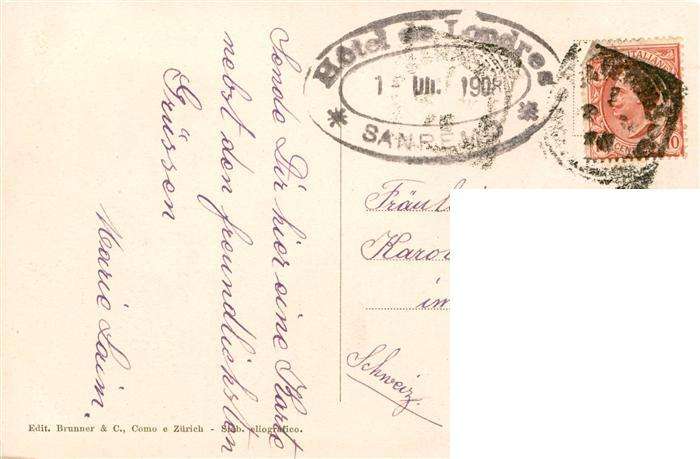 Hôtel de Londres
1 - VII. 1908
* SANREMO *
Sende Dir hier eine Karte
nebst den freundlichsten
Grüssen
Marie Laim.
im
Schweiz
Edit. Brunner & C., Como e Zürich - Stab. eliografico.